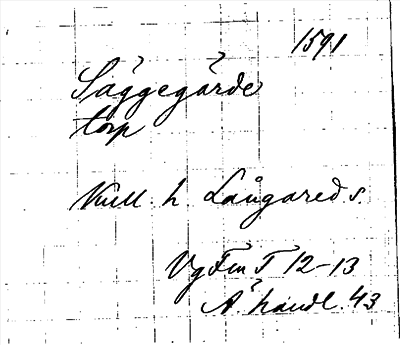 1591
Säggegärde
torp
Kull. h. Långareds s.
Vg Fm T 12-13
Ä handl. 43